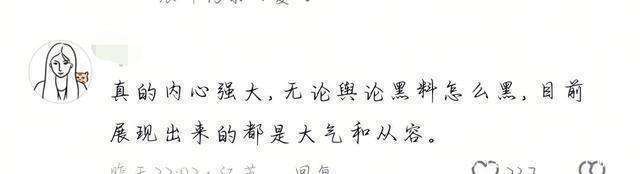 真的内心强大,无论舆论黑料怎么黑,目前
展现出来的都是大气和从容。
回复